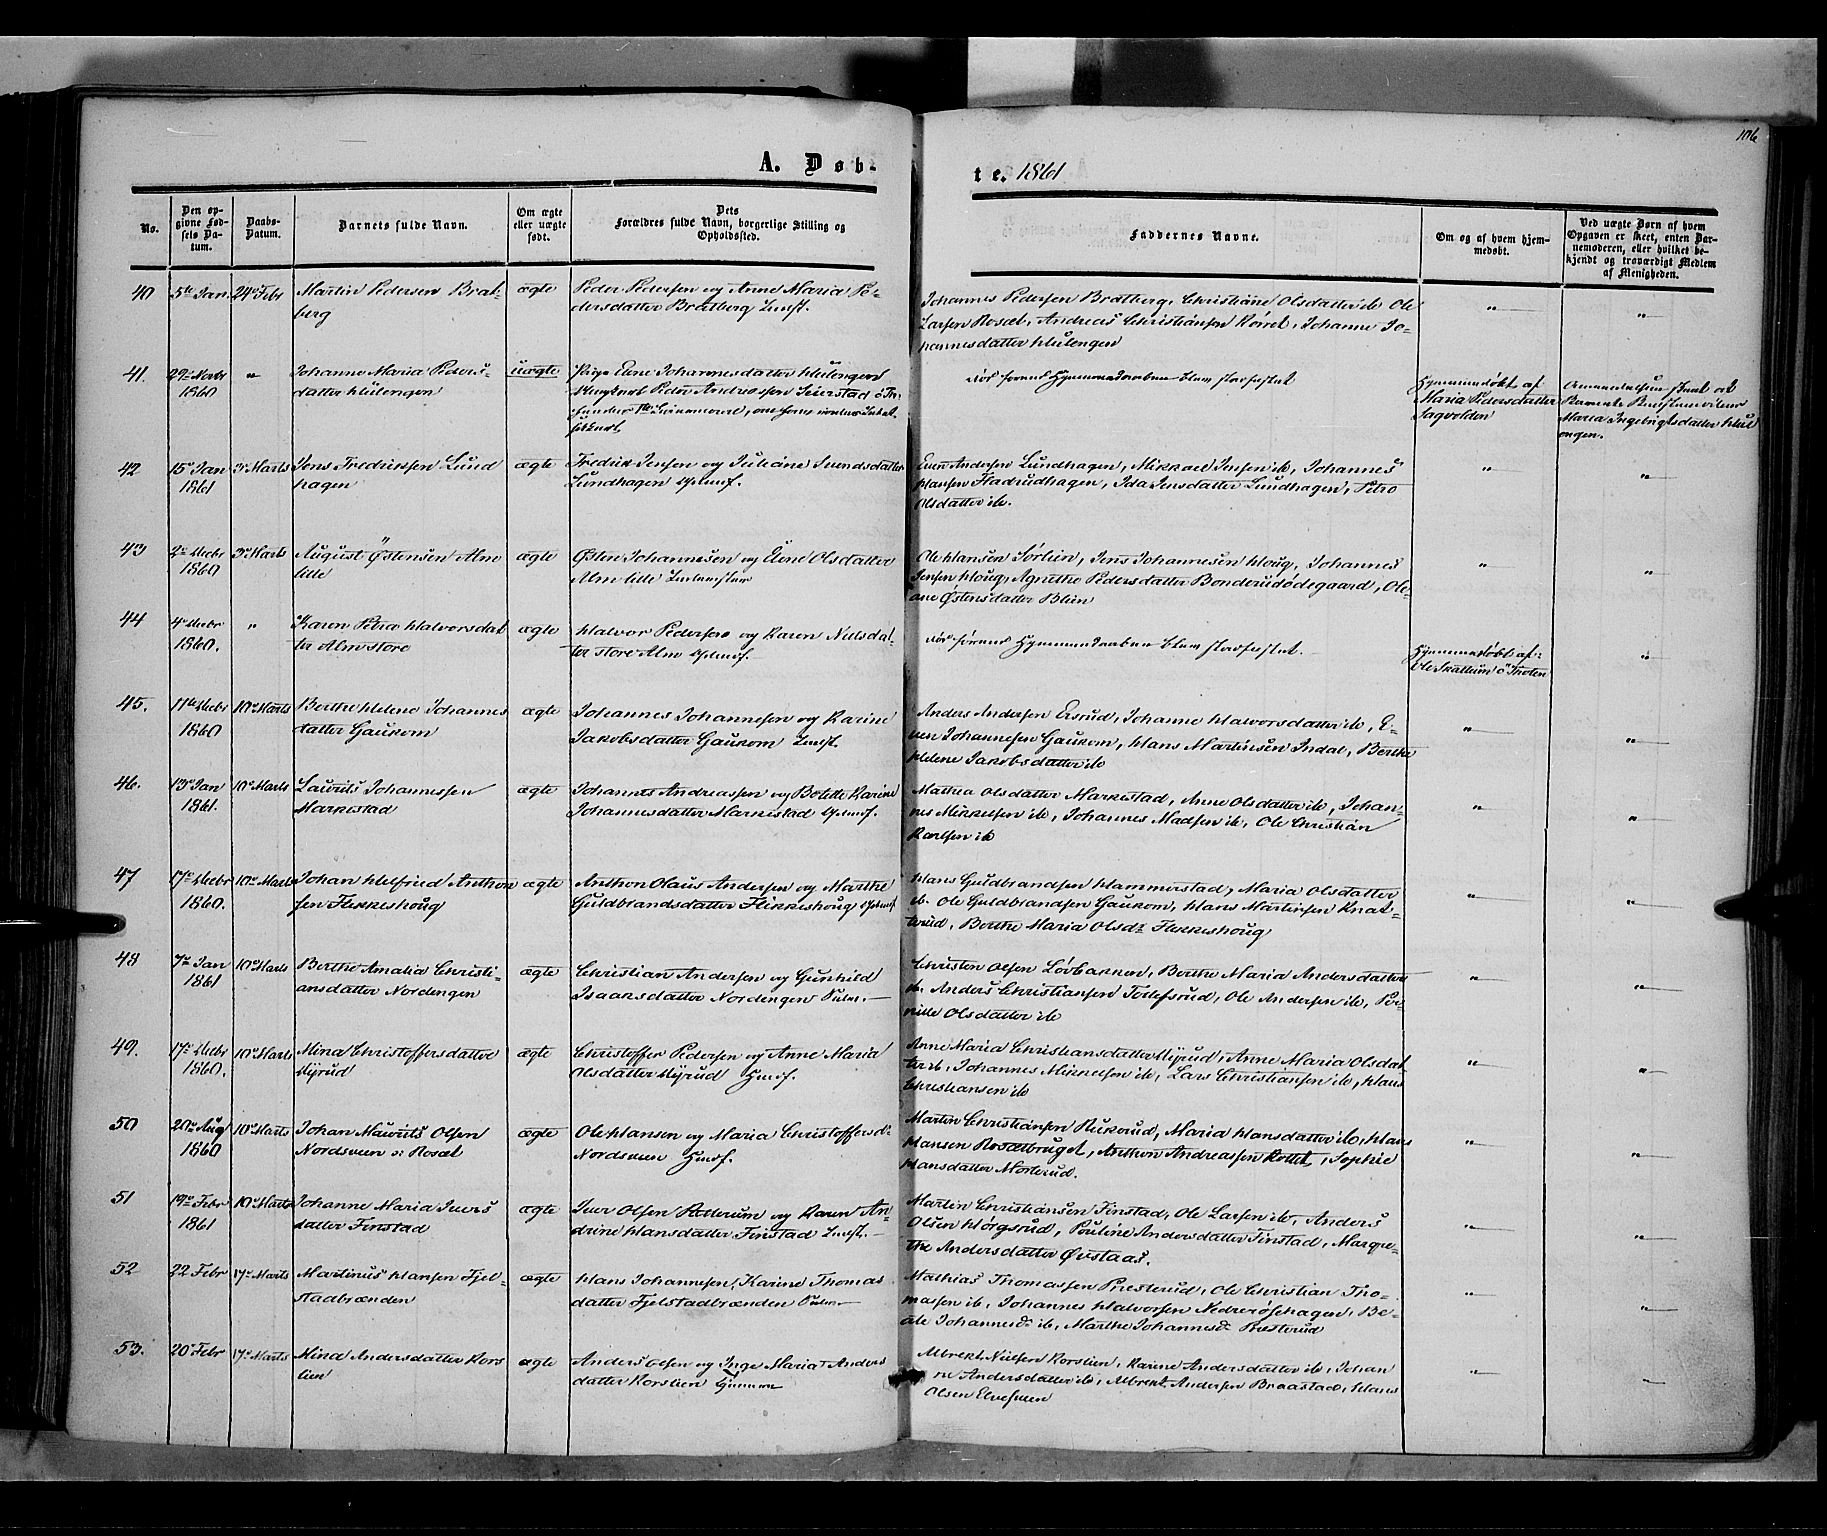 106
A. Døb-
te. 1861
No.
Den op-
givne Fød-
sels Da-
tum.
Daabs-
Datum.
Barnets fulde Navn.
Om ægte
eller uægte
født.
Dets
Forældres fulde Navn, borgerlige Stilling og
Opholdssted.
Faddernes Navne.
Om og af hvem hjem-
medøbt.
Ved uægte Børn af hvem
Opgaven er skeet, enten Bar-
nemoderen, eller hvilket be-
kjendt og troværdigt Medlem
af Menigheden.
40
5te Jan
24de Febr
Martin Pedersen Brat-
berg
ægte
Peder Pedersen og Anne Maria Pe-
dersdatter Bratberg
Johannes Pedersen Bratberg, Christiane Olsdatter ib Ole
Larsen Rosæt, Andreas Christiansen Røiret, Johanne Jo-
hannesdatter Hulengen
41.
29 Novbr
1860
"
Johanne Maria Peders-
datter Hulengen
uægte
Pige Eline Johannesdatter Hulengen
Ungkarl Peder Andreassen Seierstad
Hjemmedøbt af
Maria Pedersdatter
Sagvolden
Maria Ingebrigtsdatter Hul
engen.
42
15 Jan
1861
3 Marts
Jens Fredriksen Lund
hagen
ægte
Fredrik Jensen og Juliane Svendsdatter
Lundhagen
Even Andersen Lundhagen, Mikkael Jensen ib, Johannes
Hansen Fladrudhagen, Ida Jensdatter Lundhagen, Petro
Olsdatter ib.
43
2 Decbr
1860
3 Marts
August Østensen Alm
lille
ægte
Østen Johannesen og Eline Olsdatter
Alm lille
Ole Hansen Sørlien, Jens Johannesen Houg, Johannes
Jensen Houg, Agnethe Pedersdatter Bonderudødegaard, Ole-
ane Østensdatter Blien
44
4 Decbr
1860.
"
Karen Petra Halvorsdat
ter Alm store
ægte
Halvor Pedersen og Karen Nielsdat-
ter store Alm
Hjemmedøbt af
Ole Skattum
45.
11te Decbr
1860
10 Marts
Berthe Helene Johannes
datter Gaukom
ægte
Johannes Johannesen og Karine
Jakobsdatter Gaukom
Anders Andersen Ersrud, Johanne Halvorsdatter ib, E-
ven Johannesen Gaukom, Hans Martinsen Indal, Berthe
Helene Jakobsdatter ib
46.
13 Jan
1861.
10 Marts
Laurits Johannessen
Markestad
ægte
Johannes Andreassen og Bolette Karine
Johannesdatter Markestad
Mathea Olsdatter Markestad, Anne Olsdatter ib, Johan-
nes Mikkelsen ib, Johannes Madsen ib, Ole Christian
Karlsen ib
47
17 Decbr
1860.
10 Marts
Johan Helfried Anthon
sen Flekkeshoug
ægte
Anthon Olaus Andersen og Marthe
Guldbrandsdatter Flikkeshoug
Hans Guldbrandsen Hammerstad, Maria Olsdatter
ib. Ole Guldbrandsen Gaukom, Hans Martinsen Knat-
terud, Berthe Maria Olsdr Flekkeshoug
48
7 Jan
1861
10 Marts
Berthe Amalia Christi-
ansdatter Nordengen
ægte
Christian Andersen og Gunhild
Isaansdatter Nordengen
Christen Olsen Løvbakken, Berthe Maria Andersdatter
ib. Anders Christiansen Tollefsrud, Ole Andersen ib, Per-
nille Olsdatter ib
49.
17 Decbr
1860.
10 Marts
Mina Christoffersdatter
Myrud
ægte
Christoffer Pedersen og Anne Maria
Olsdatter Myrud
Anne Maria Christiansdatter Myrud, Anne Maria Olsdat
ter ib, Johannes Mikkelsen ib, Lars Christiansen ib, Hans
Christiansen ib
50
20 Aug
1860
10 Marts
Johan Maurits Olsen
Nordsveen Rosæt
ægte
Ole Hansen og Maria Christoffersd
Nordsveen
Martin Christiansen Rukerud, Maria Hansdatter ib, Hans
Hansen Rosætbruget, Anthon Andreassen Kottet, Sophie
Hansdatter Morterud.
51
19 Febr
1861
10 Marts
Johanne Maria Ivers
datter Finstad
ægte
Iver Olsen og Karen An-
drine Hansdatter Finstad
Martin Christiansen Finstad, Ole Larsen ib, Anders
Olsen Hørgsrud, Pouline Andersdatter Finstad, Margre-
the Andersdatter Øvstaas.
52
22 Febr
17 Marts
Martinus Hansen Fjel-
stadbrænden
ægte
Hans Johannesen, Karine Thomas
datter Fjelstadbrænden
Mathias Thomassen Presterud, Ole Christian Tho-
massen ib, Johannes Halvorsen Nedrerøsehagen, Be-
ate Johannesd. ib, Marthe Johannesd. Presterud
53.
20 Febr
17 Marts
Mina Andersdatter Kors
lien
ægte
Anders Olsen og Inge Maria Anders
datter Korslien
Albrekt Nielsen Korslien, Karine Andersdatter ib, Johan
ne Andersdatter ib, Albrekt Andersen Braastad, Hans
Olsen Elvesveen